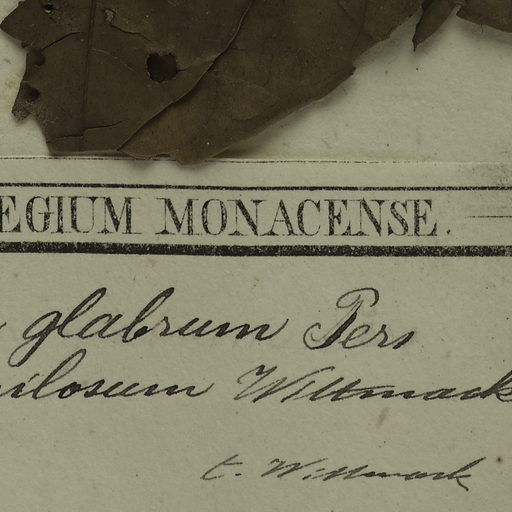 EGIUM MONACENSE.
glabrum Pers
ilosum Wittmack
t. Wittmack